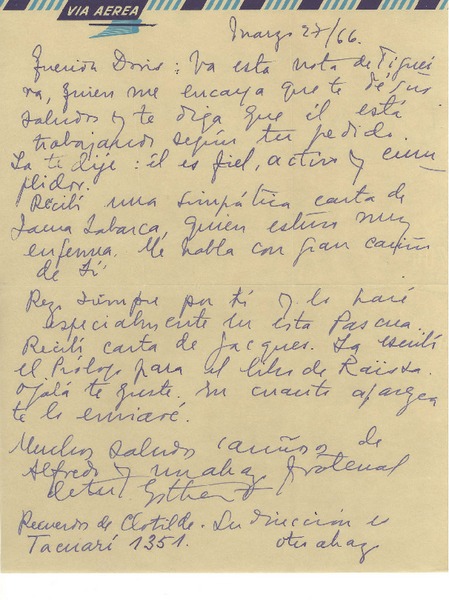 VIA AEREA
Marzo 27/66.
Querida Doris: Va esta nota de Figuei
ra, quien me encarga que te dé sus
saludos y te diga que él está
trabajando según tu pedido.
Ya te dije: él es fiel, activo y cum
plidor.
Recibí una simpática carta de
Laura Labarca, quien estuvo muy
enferma. Me habla con gran cariño
de tí
Rezo siempre por tí y lo haré
especialmente en esta Pascua.
Recibí carta de Jacques. Ya escribí
el Prólogo para el libro de Raïssa.
Ojalá te guste. En cuanto aparezca
te lo enviaré.
Muchos saludos cariños de
Alfredo y un abrazo fraternal
de tu Esther
Recuerdos de Clotilde. Su dirección es
Tacuarí 1351. otro abrazo